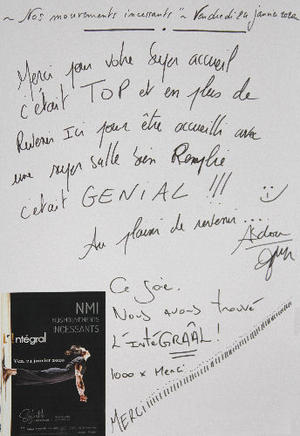 ~ "Nos mouvements incessants" ~ Vendredi 24 janvier 2020
Merci pour votre super accueil
c'était TOP et en plus de
Revenir Ici pour être accueilli avec
une super salle bien Remplie
c'était GENIAL !!!
Au plaisir de revenir ...
Ce soir.
Nous avons trouvé
L'INTÉGRAÂL !
1000 x Merci
MERCI!!!!!!!!!!!!!!!!
NMI
NOS MOUVEMENTS
INCESSANTS
L'Intégral
Ven. 24 janvier 2020